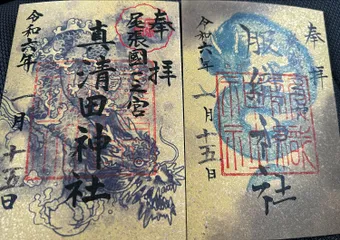 奉拝
尾張國一之宮
真清田神社
令和六年一月十五日
奉拝
服織神社
令和六年一月十五日